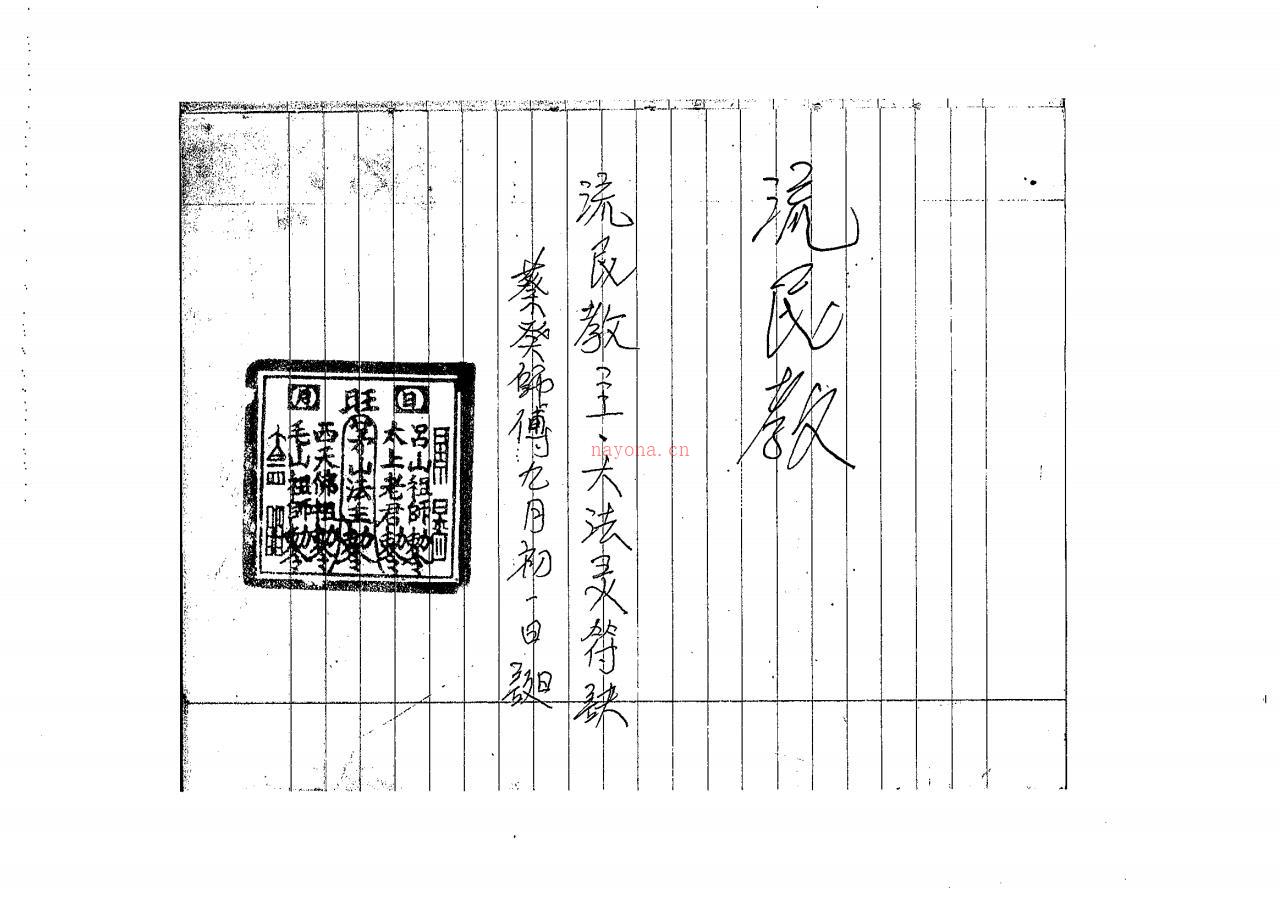 流民教
流民教主、大法
符訣
蔡癸師傅九月初一日
nayona.cn
日
旺
月
呂山祖師勅令
太上老君勅令
茅山法主勅令
西天佛祖勅令
毛山祖師勅令